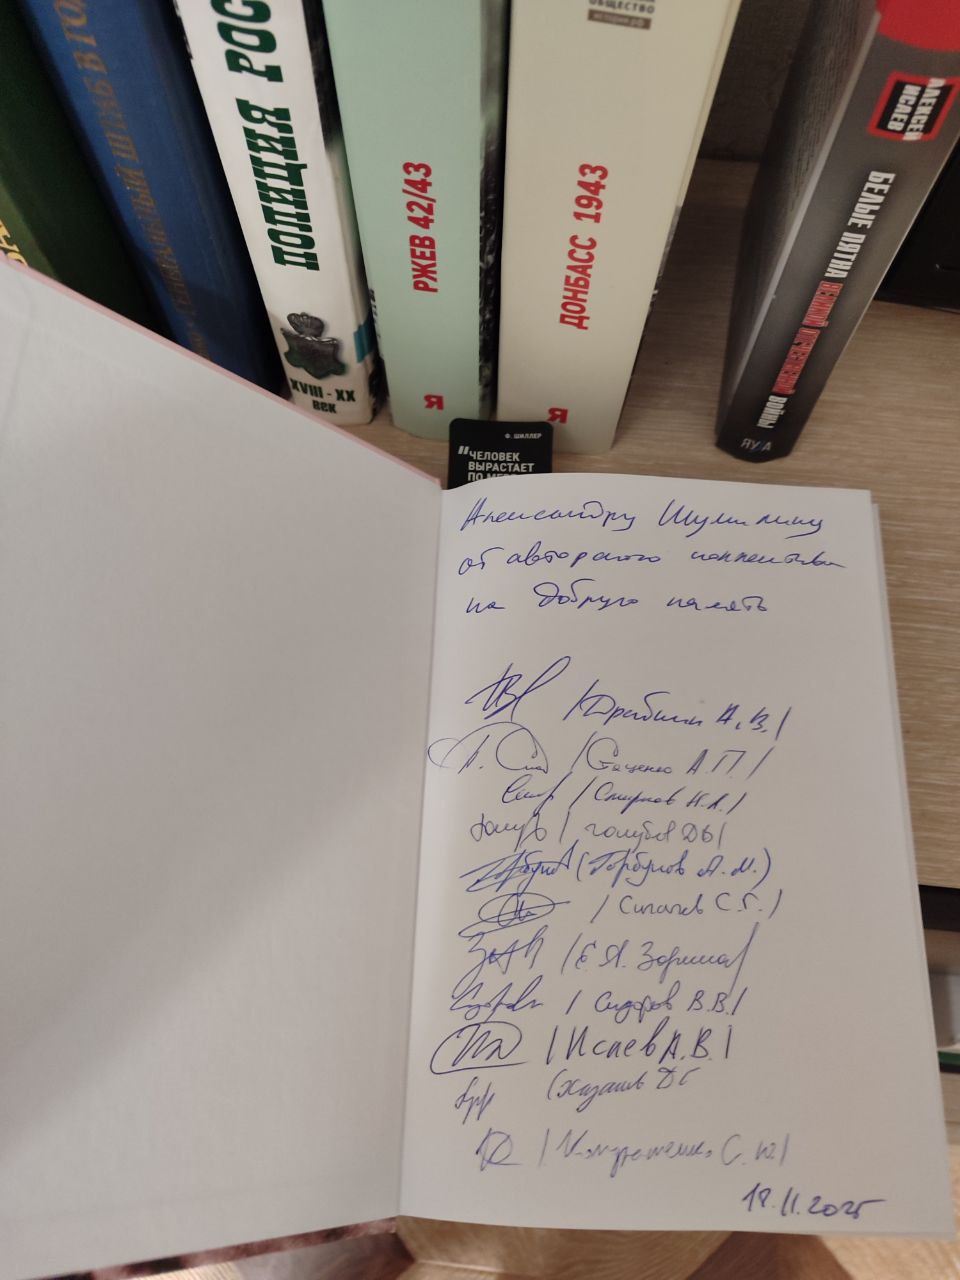 ГЕНЕРАЛЬНЫЙ ШТАБ В ГО
ПОЛИЦИЯ РОС
XVIII - XX
ВЕК
РЖЕВ 42/43
Я
ОБЩЕСТВО
история.рф
ДОНБАСС 1943
Я
АЛЕКСЕЙ
ИСАЕВ
БЕЛЫЕ ПЯТНА ВЕЛИКОЙ ОТЕЧЕСТВЕННОЙ ВОЙНЫ
ЯУЗА
Ф. ШИЛЛЕР
"ЧЕЛОВЕК
ВЫРАСТАЕТ
ПО МЕРЕ
Александру Шумилину
от авторского коллектива
на добрую память
/Драбкин А.В./
/Стаценко А.П./
/Смирнов Н.А./
/Голубев
(Горбунов А.М.)
/ С.Г./
/Е.Я. Зорина/
/ Сидоров В.В./
/Исаев А.В./
(Хазанов Д Б
/Кондратенко С.Ю./
18.11.2025